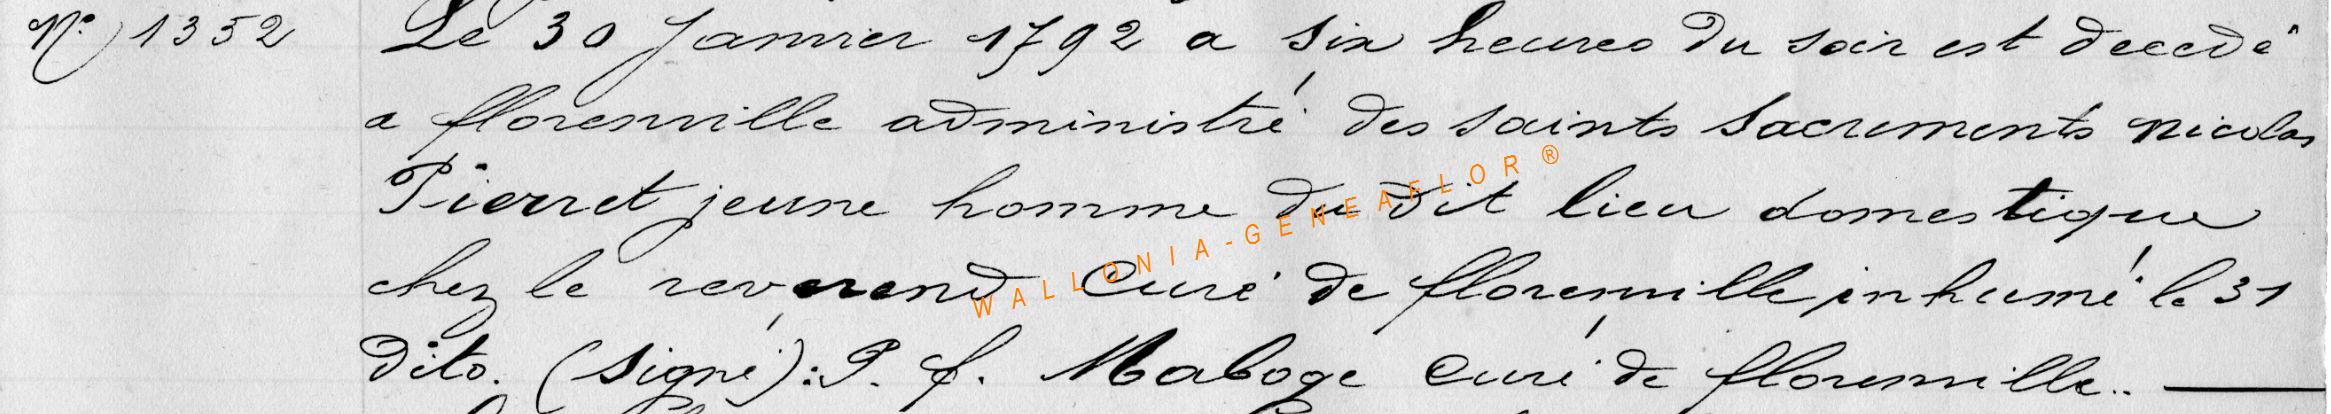 N° 1352 Le 30 Janvier 1792 a six heures du soir est decedé
a florenville administré des saints Sacrements nicolas
Pierret jeune homme du dit lieu domestique
chez le reverend Curé de florenville inhumé le 31
dito. (signé): P. f. Maboge Curé de florenville..
WALLONIA-GENEAFLOR®